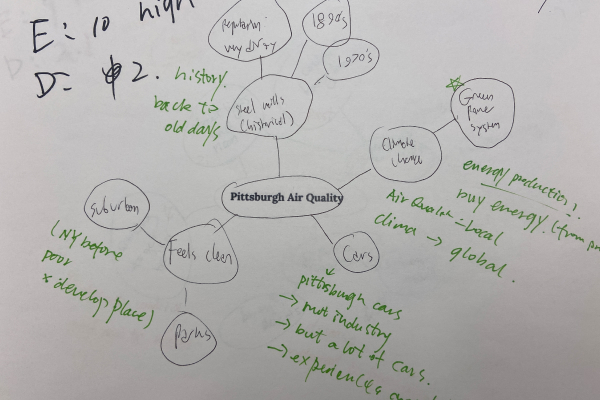 E: 10 high
D: $2.
Reputation:
very dirty
1890's
1970's
Steel mills
(historical)
history.
back to
old days
Green
Power
System
Climate
change
energy production!
buy energy. (from
Air Quality = Local
clima → global.
Pittsburgh Air Quality
suburban
Feels clean
(NY before
poor
x develop place)
Parks
Cars
pittsburgh cars
→ not industry
→ but a lot of cars.
→ experience